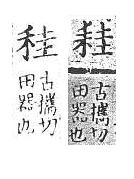 古攜切
田器也
䅅
古攜切
田器也